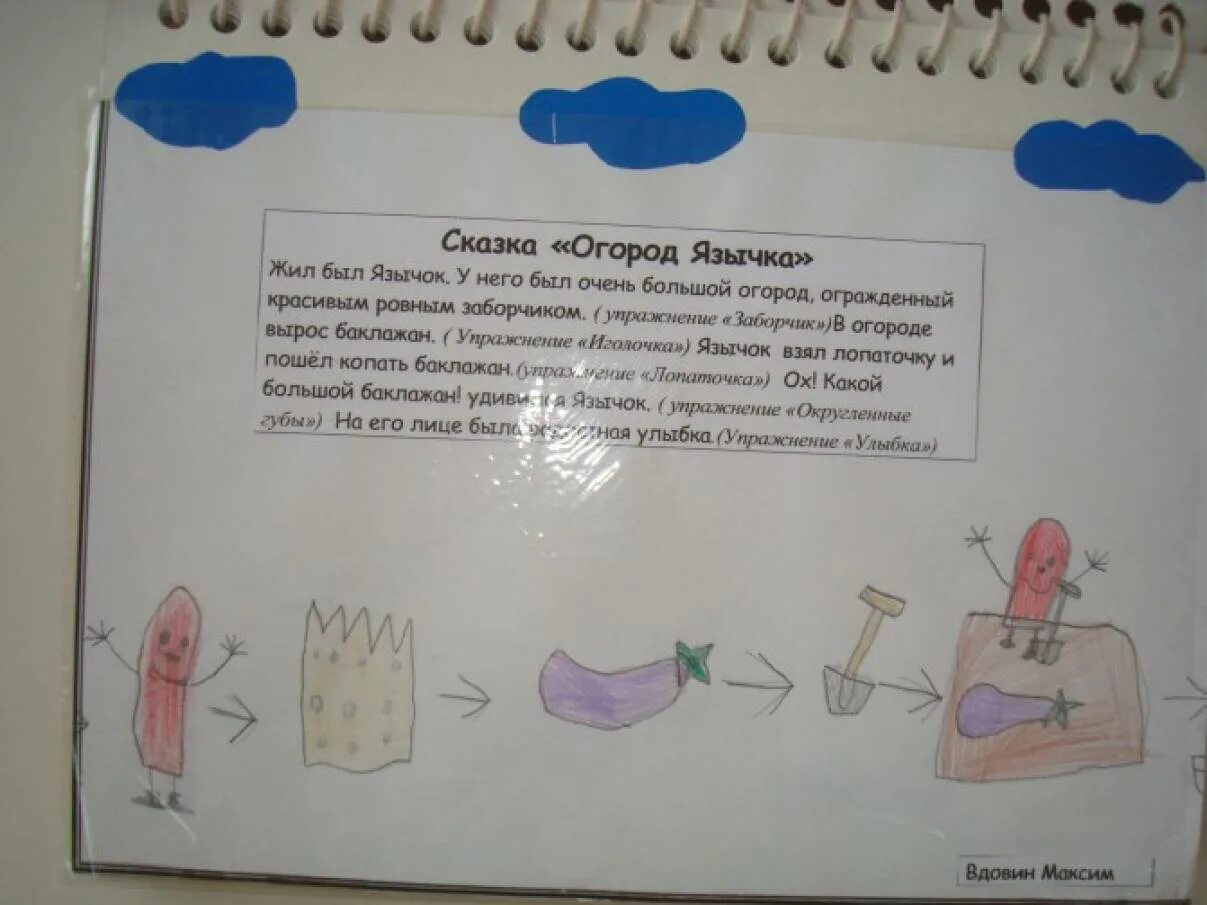 Сказка «Огород Язычка»
Жил был Язычок. У него был очень большой огород, огражденный
красивым ровным заборчиком. ( упражнение «Заборчик»)В огороде
вырос баклажан. ( Упражнение «Иголочка») Язычок взял лопаточку и
пошёл копать баклажан.(упражнение «Лопаточка») Ох! Какой
большой баклажан! удивился Язычок. ( упражнение «Округленные
губы») На его лице была улыбка.(Упражнение «Улыбка»)
Вдовин Максим